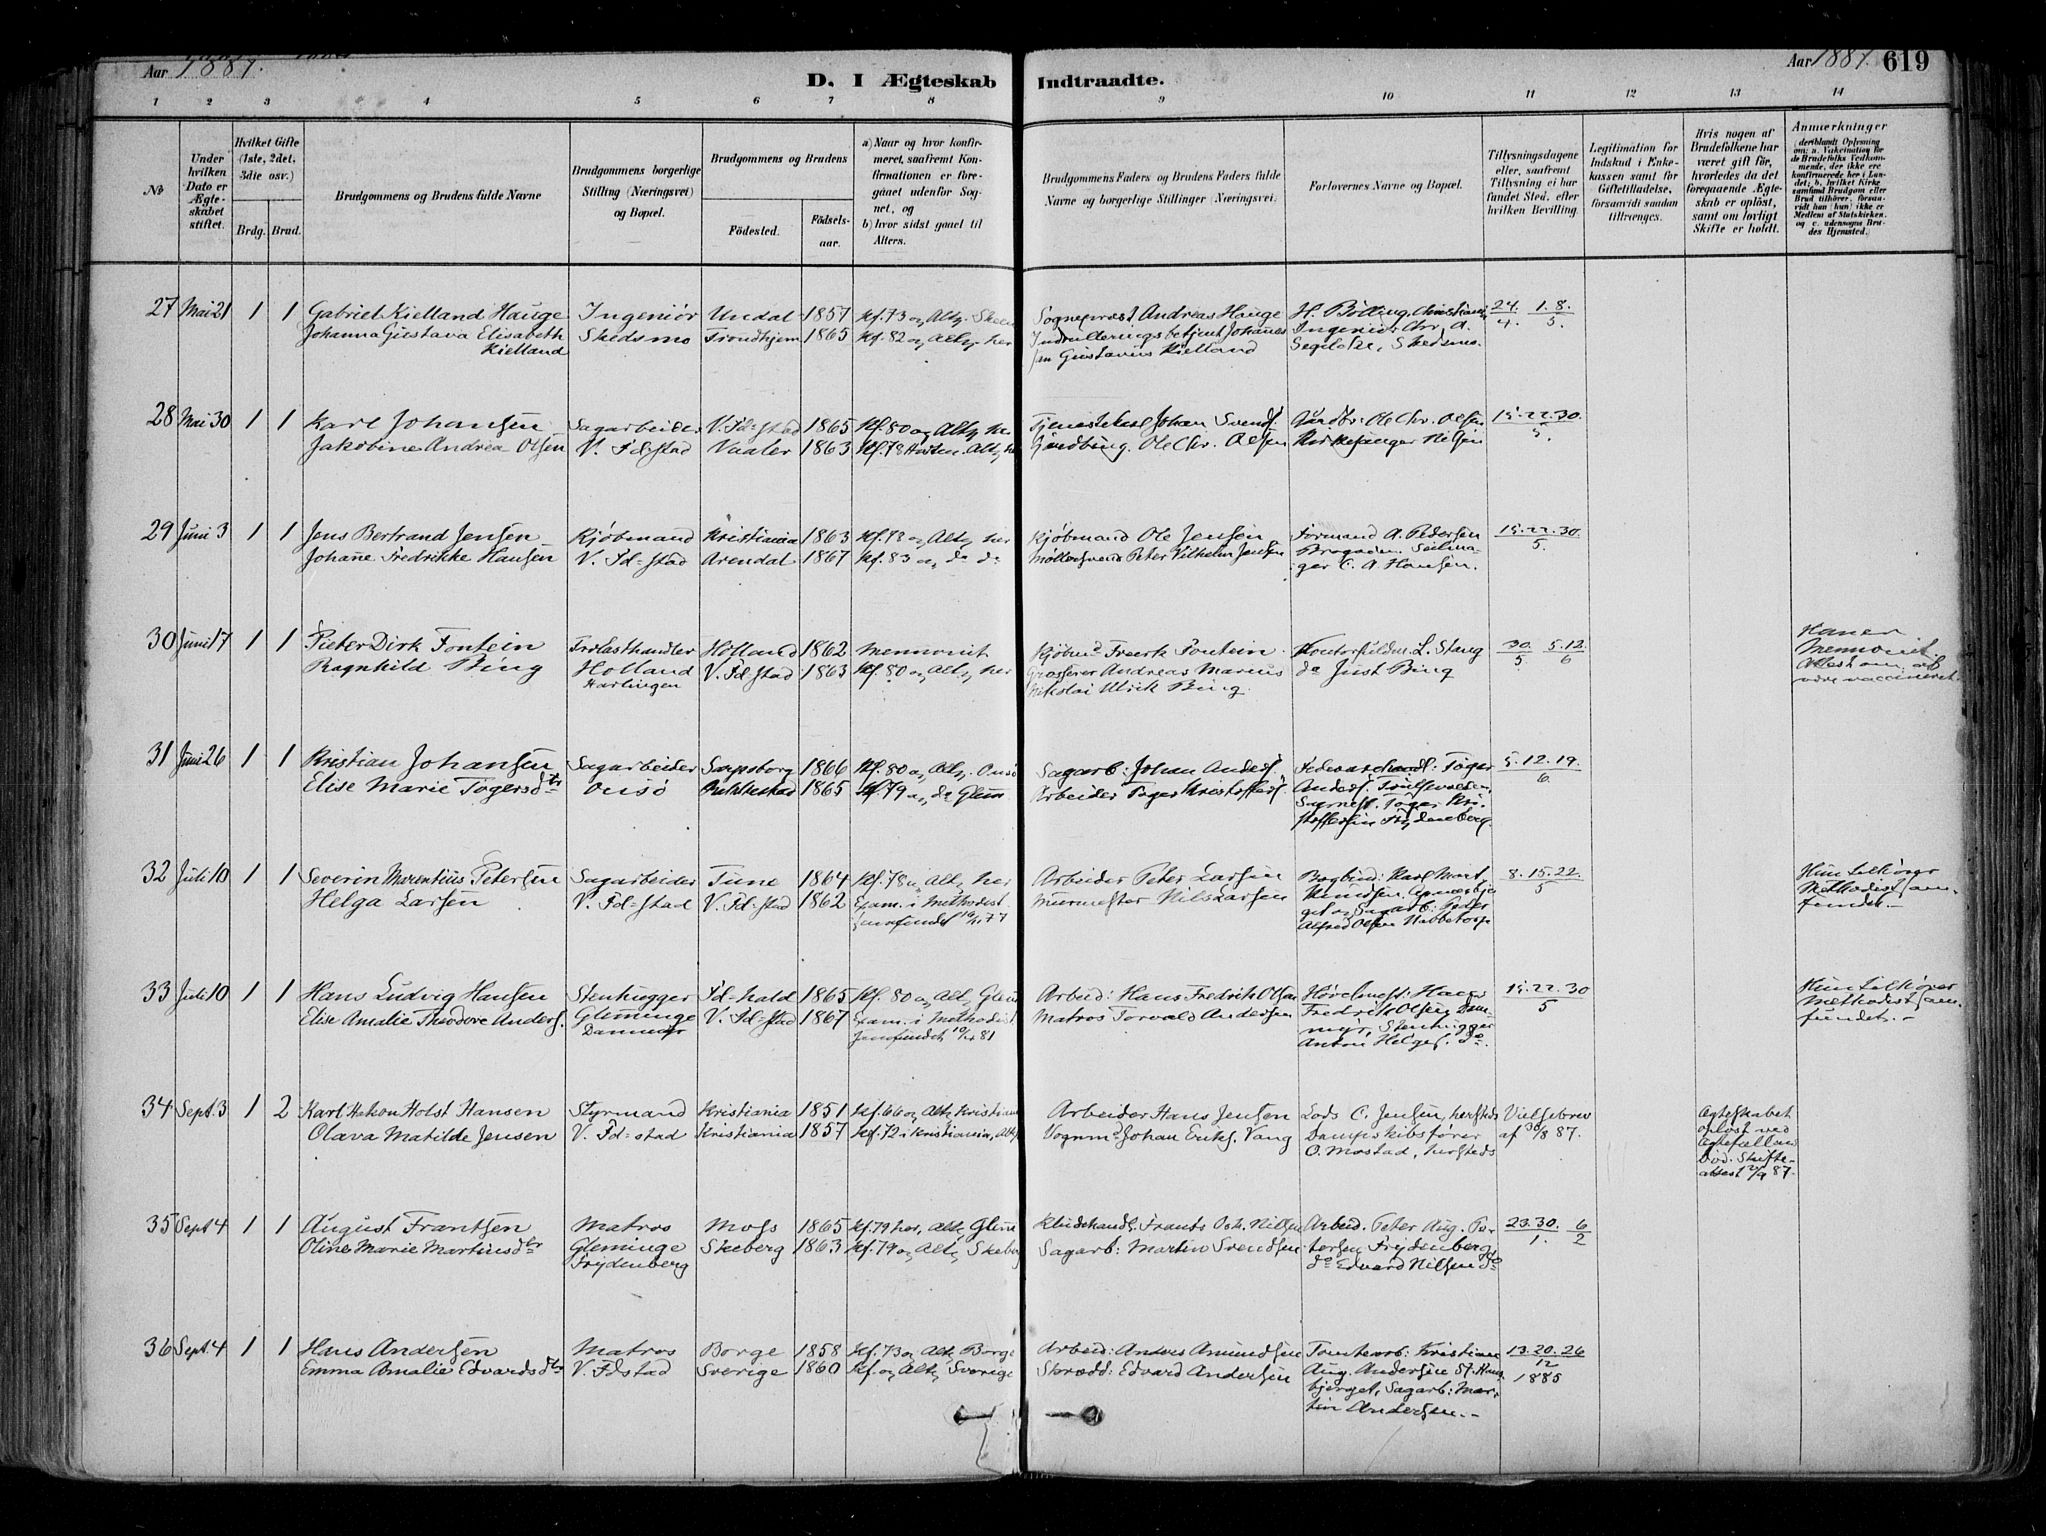 Aar 1887.
D. I Ægteskab Indtraadte.
Aar 1887. 619
1 2 3 4 5 6 7 8 9 10 11 12 13 14
No
Under hvilken Dato er Ægteskabet stiftet.
Hvilket Gifte (1ste, 2det, 3die osv.)
Brdg. Brud.
Brudgommens og Brudens fulde Navne
Brudgommens borgerlige Stilling (Næringsvei) og Bopæl.
Brudgommens og Brudens
Födested. Födselsaar.
a) Naar og hvor konfirmeret, saafremt Konfirmationen er foregaaet udenfor Sognet, og
b) hvor sidst gaaet til Alters.
Brudgommens Faders og Brudens Faders fulde Navne og borgerlige Stillinger (Næringsvei.)
Forlovernes Navne og Bopæl.
Tillysningsdagene eller, saafremt Tillysning ei har fundet Sted, efter hvilken Bevilling.
Legitimation for Indskud i Enkekassen samt for Giftetilladelse, forsaavidt saadan tiltrænges.
Hvis nogen af Brudefolkene har været gift för, hvorledes da det foregaaende Ægteskab er oplöst, samt om lovligt Skifte er holdt.
Anmerkninger
(deriblandt Oplysning om: a. Vakcination for de Brudefolks Vedkommende, der ikke ere konfirmerede her i Landet; b. hvilket Kirkesamfund Brudgom eller Brud tilhörer, forsaavidt han (hun) ikke er Medlem af Statskirken, og c. udensogns Brudes Hjemsted.
27 Mai 21 1 1 Gabriel Kielland Hauge Ingeniör Undal 1857 Kf. 73 og Altg. Skeen
Johanna Gustava Elisabeth Skedsmo Trondhjem 1865 Kf. 82 og Altg. her
Kielland
Sogneprest Andreas Hauge H. Bötting, Christiania 24/4. 1. 8/5.
Indrulleringsbetjent Johannes Ingeniör Chr. A.
Jan Gustavus Kielland Segelcke, Skedsmo.
28 Mai 30 1 1 Karl Johansen Sagarbeider V. Fd=stad 1865 Kf. 80 og Altg. her
Jakobine Andrea Olsen V. Fd=stad Vaaler 1863 Kf. 78 Horten. Altg. her
Tjenestekarl Johan Svends. Gaardbr: Ole Chr. Olsen 15. 22. 30/5.
Ole Chr. Olsen Kirkesanger Nilsen
29 Juni 3 1 1 Jens Bertrand Jensen Kjöbmand Kristiania 1863 Kf. 78 og Altg. her
Johane Fredrikke Hansen V. Fd=stad Arendal 1867 Kf. 83 og do do
Kjöbmand Ole Jensen Formand A. Pedersen 15. 22. 30/5.
Möllersvend Peter Vilhelm Jensen Seilmager C. A. Hansen.
30 Juni 17 1 1 Pieter Dirk Fontein Trælasthandler Holland 1862 Mennonit
Ragnhild Bing Holland V. Fd=stad 1863 Kf. 80 og Altg. her
Harlingen
Kjöbmd Freerk Fontein Kontorfuldm. L. Stang 30/5 5. 12/6
Grosserer Andreas Marius do Just Bing
Nikolai Ulrik Bing.
Han er Mennonit. Attest om at være vaccineret.
31 Juni 26 1 1 Kristian Johansen Sagarbeider Sarpsborg 1866 Kf. 80 og Altg. Onsö
Elise Marie Tögersdtr Onsö Rakkestad 1865 Kf. 79 og do Glem
Sagarb: Johan Anders. Fedevarehandl: Töger 5. 12. 19/6
Arbeider Töger Kristoffers. Anders.
Töger Kristoffersen Frydenberg.
32 Juli 10 1 1 Severin Marentius Petersen Sagarbeider Tune 1864 Kf. 78 og Altg. her
Helga Larsen V. Fd=stad V. Fd=stad 1862 Exam. i Methodist-
samfundet 77
Arbeider Peter Larsen Bogbind: Karl Mart. 8. 15. 22/5
Murmester Nils Larsen Knudsen,
Sagarb: Peder
Alfred Olsen Nabbetorp
Hun tilhörer Methodistsamfundet.-
33 Juli 10 1 1 Hans Ludvig Hansen Stenhugger Fd=hald 1865 Kf. 80 og Altg. Glem
Elise Amalie Theodore Anders. Glemminge V. Fd=stad 1867 Exam. i Methodist
Dammyr samfundet 10/4 81
Arbeid: Hans Fredrik Olsen Hövelmest: Hans 15. 22. 30/5
Matros Torvald Andersen Fredrik Olsen Dammyr, Stenhugger
Anton Helges. do.
Hun tilhörer Methodistsamfundet.-
34 Sept. 3 1 2 Karl Hakon Holst Hansen Styrmand Kristiania 1851 Kf. 66 og Altg. Kristiania
Olava Matilde Jensen V. Fd=stad Kristiania 1857 Kf. 72 i Kristiania, Altg.
Arbeider Hans Jensen Lods C. Jensen, hersteds Vielsebrev
Vognmd Johan Eriks. Vang Dampskibsförer af 30/8 87.
O. Mostad, hersteds
Ægteskabet oplöst ved Ægtefællens Död. Skifteattest 2/9 87.
35 Sept 4 1 1 August Frantsen Matros Moss 1865 Kf. 79 her, Altg. Glem
Oline Marie Martinsdtr Glemminge Skeberg 1863 Kf. 79 og Altg. Skeberg
Frydenberg
Frants Och. Nilsen Arbeid. Peter Aug. Pe- 23. 30/1. 6/2
Sagarb: Martin Svendsen tersen Frydenberg,
do Edvard Nilsen do
36 Sept. 4 1 1 Hans Andersen Matros Borge 1858 Kf. 73 og Altg. Borge
Emma Amalie Edvardsdtr V. Fdstad Sverige 1860 Kf. og Altg. Sverige
Arbeid: Anders Amundsen Tomtearb: Kristian 13. 20. 26/12
Skrædd: Edvard Andersen Aug. Andersen St. Hans- 1885
bjerget, Sagarb: Mar-
tin Andersen.-